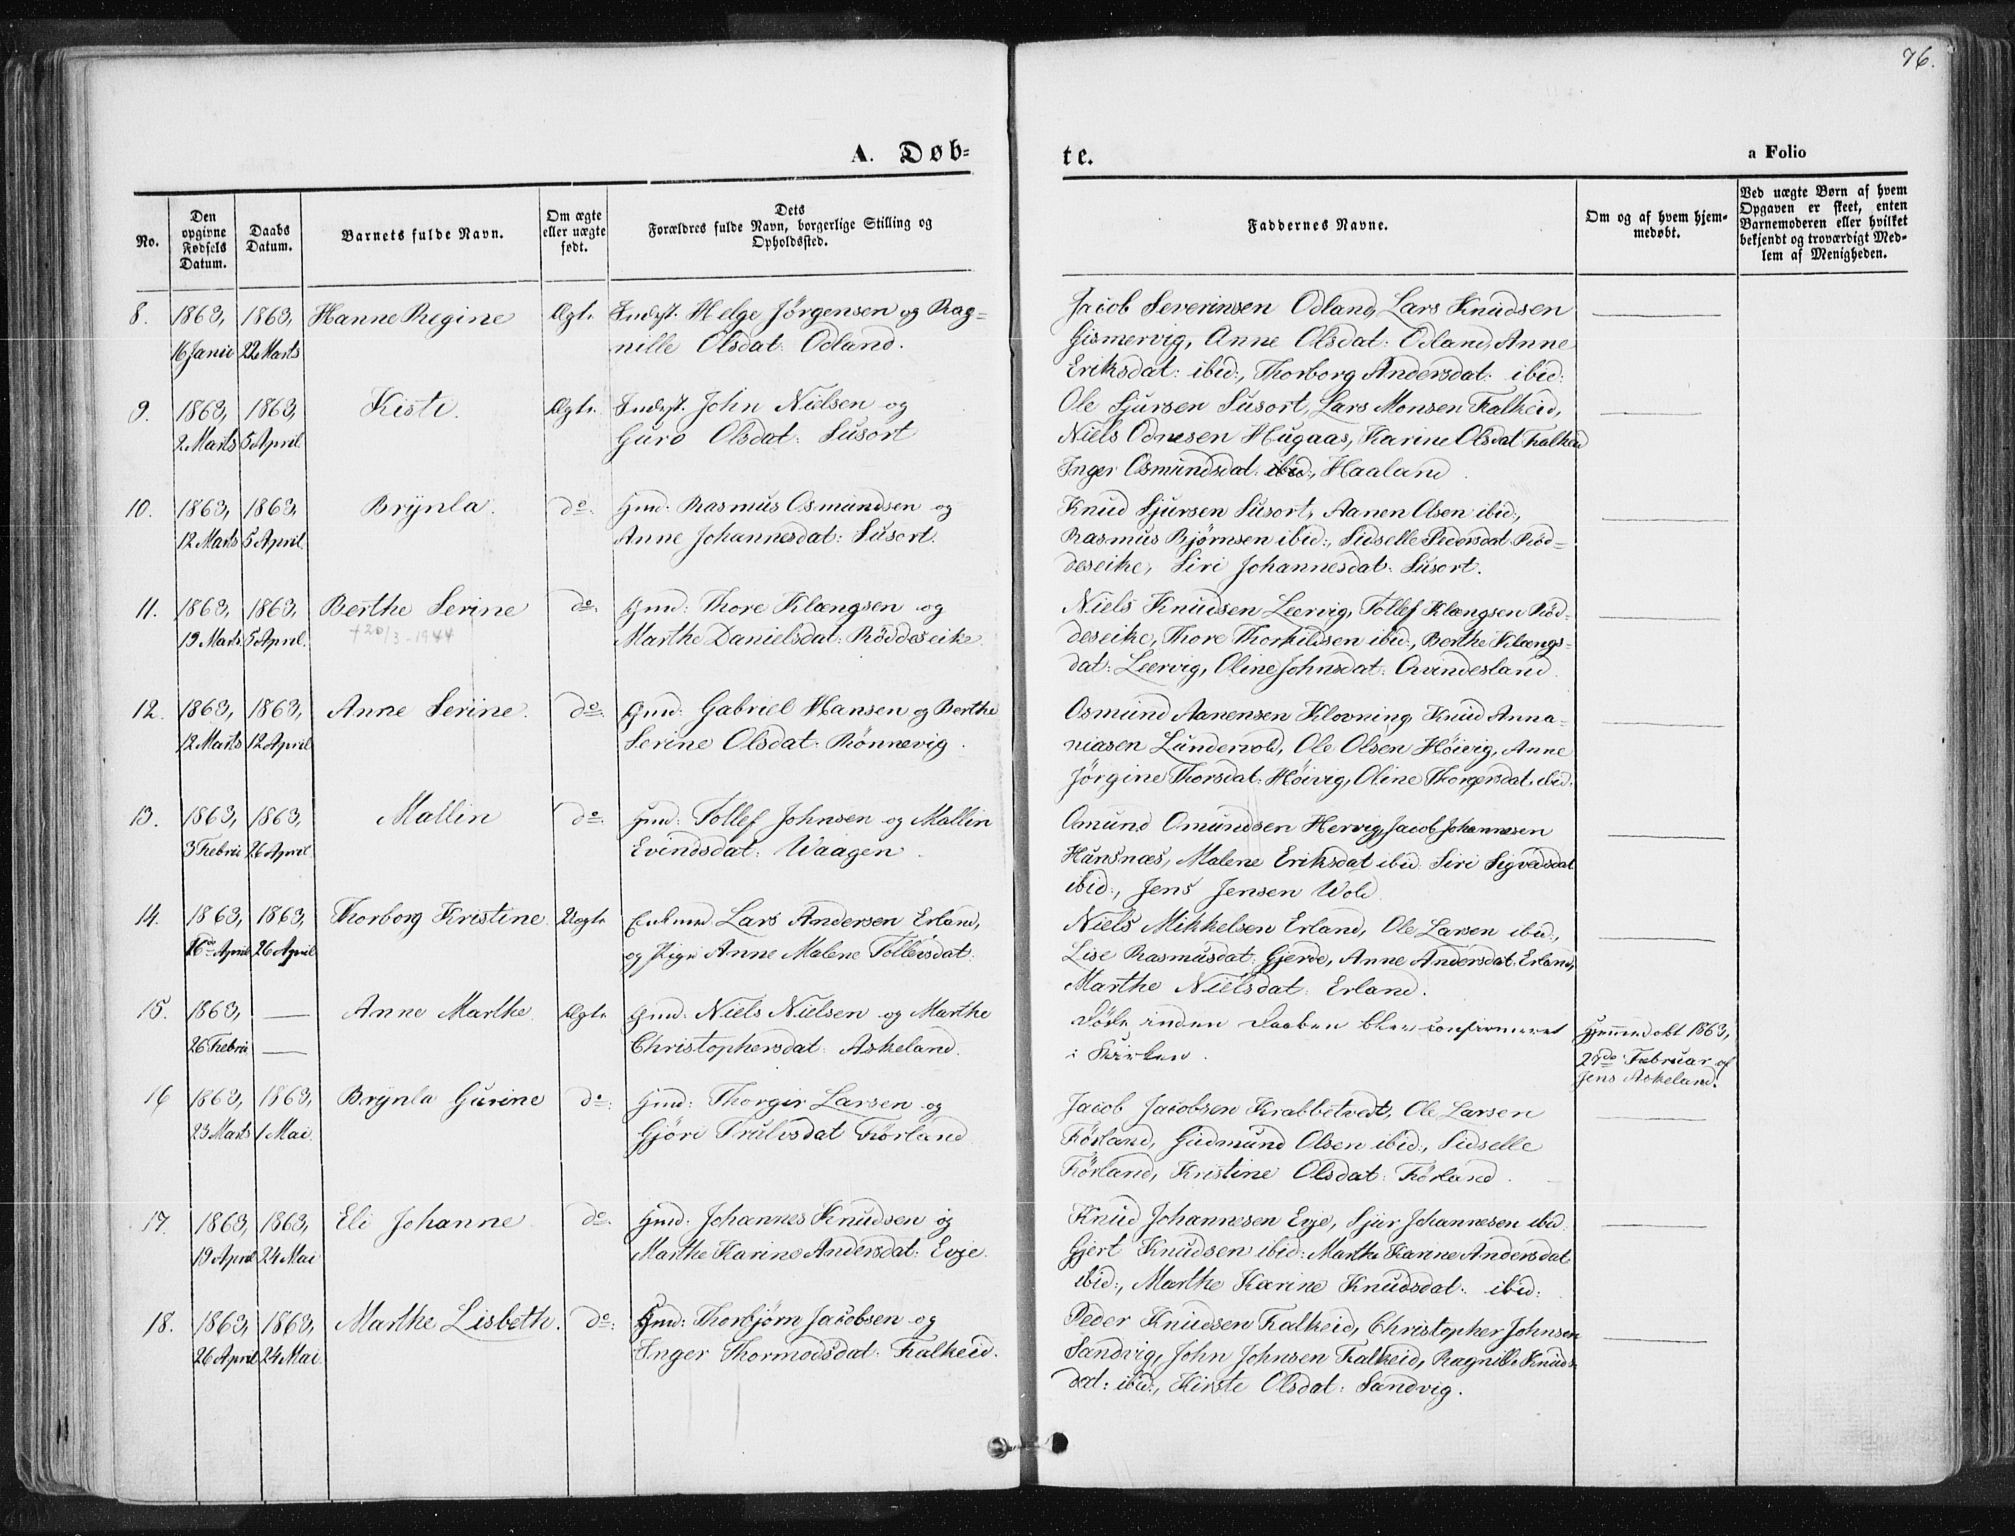 76.
A. Døb=
te.
a Folio
No.
Den opgivne Fødsels Datum.
Daabs Datum.
Barnets fulde Navn.
Om ægte eller uægte født.
Dets
Forældres fulde Navn, borgerlige Stilling og
Opholdssted.
Faddernes Navne.
Om og af hvem hjem-
medøbt.
Ved uægte Børn af hvem
Opgaven er skeet, enten
Barnemoderen eller hvilket
bekjendt og troværdigt Med-
lem af Menigheden.
8. 1863, 1863, Hanne Regine Ægte Indst. Helge Jörgensen og Rag=
16 Janu 22 Marts nille Olsdat: Odland.
Jacob Severinsen Odland, Lars Knudsen
Gismervig, Anne Olsdat: Odland, Anne
Eriksdat: ibid:, Thorborg Andersdat: ibid:
9. 1863, 1863, Kiste. Ægte Indst. John Nielsen og
2 Marts 5 April Guro Olsdat: Susort
Ole Sjursen Susort, Lars Monsen Falkeid,
Niels Odnesen Hugaas, Karine Olsdat Falkeid
Inger Osmundsdat: ibid, Haaland.
10. 1863, 1863, Brÿnla. do. Gmd: Rasmus Osmundsen og
12 Marts 5 April Anne Johannesdat: Susort.
Knud Sjursen Susort, Aanen Olsen ibid:,
Rasmus Bjørnsen ibid:, Sidselle Pedersdat: Röd=
deseike, Siri Johannesdat: Susort.
11. 1863, 1863, Berthe Serine do. Gmd: Thore Klængsen og
19 Marts 5 April † 20/3-1944 Marthe Danielsdat: Röddeseike.
Niels Knudsen Leervig, Tollef Klængsen Röd=
deseike, Thore Thorkildsen ibid:, Berthe Klængs=
dat: Leervig, Oline Johnsdat: Qvindesland.
12. 1863, 1863, Anne Serine. do. Gmd: Gabriel Hansen og Berthe
12 Marts 12 April Serine Olsdat: Rönnevig.
Osmund Aanensen Klovning, Knud Anna=
niasen Lundevold, Ole Olsen Höivig, Anne
Jörgine Thorsdat: Höivig, Oline Thorgersdat: ibid:
13. 1863, 1863, Mallin do. Gmd: Tollef Johnsen og Mallin
3 Febru 26 April Evindsdat: Waagen.
Omund Omundsen Hervig, Jacob Johannesen
Hunsnæs, Malene Eriksdat ibid: Siri Sigvadsdat
ibid:, Jens Jensen Wold.
14. 1863, 1863, Thorborg Kristine Uægte Enkemd Lars Andersen Erland,
16de April 26 April og Pige Anne Malene Tollefsdat:
Niels Mikkelsen Erland, Ole Larsen ibid:,
Lise Rasmusdat: Gjerde, Anne Andersdat: Erland,
Marthe Nielsdat: Erland.
15. 1863, — Anne Marthe. Ægte Gmd: Niels Nielsen og Marthe
26 Febru — Christophersdat: Askeland.
Döde inden Daaben blev confirmeret
i Kirken.
Hjemmedobt 1863,
27de Februar af
Jens Askeland.
16 1863, 1863, Brÿnla Gurine do: Gmd: Thorgir Larsen og
23 Marts 1 Mai. Gjöri Trulvsdat Förland.
Jacob Jacobsen Krabbetvedt, Ole Larsen
Förland, Gudmund Olsen ibid:, Sidselle
Förland, Kristine Olsdat: Förland.
17. 1863, 1863, Eli Johanne do. Gmd: Johannes Knudsen og
19 April 24 Mai Marthe Karine Andersdat: Evje.
Knud Johannesen Evje, Sjur Johannesen ibid.
Gjert Knudsen ibid: Marthe Karine Andersdat:
ibid:, Marthe Karine Knudsdat: ibid:
18. 1863, 1863, Marthe Lisbeth. do: Gmd: Thorbjörn Jacobsen og
26 April 24 Mai Inger Thormodsdat: Falkeid.
Peder Knudsen Falkeid, Christopher Johnsen
Sandvig, John Johnsen Falkeid, Ragnille Knuds=
dat: ibid:, Kirste Olsdat: Sandvig.